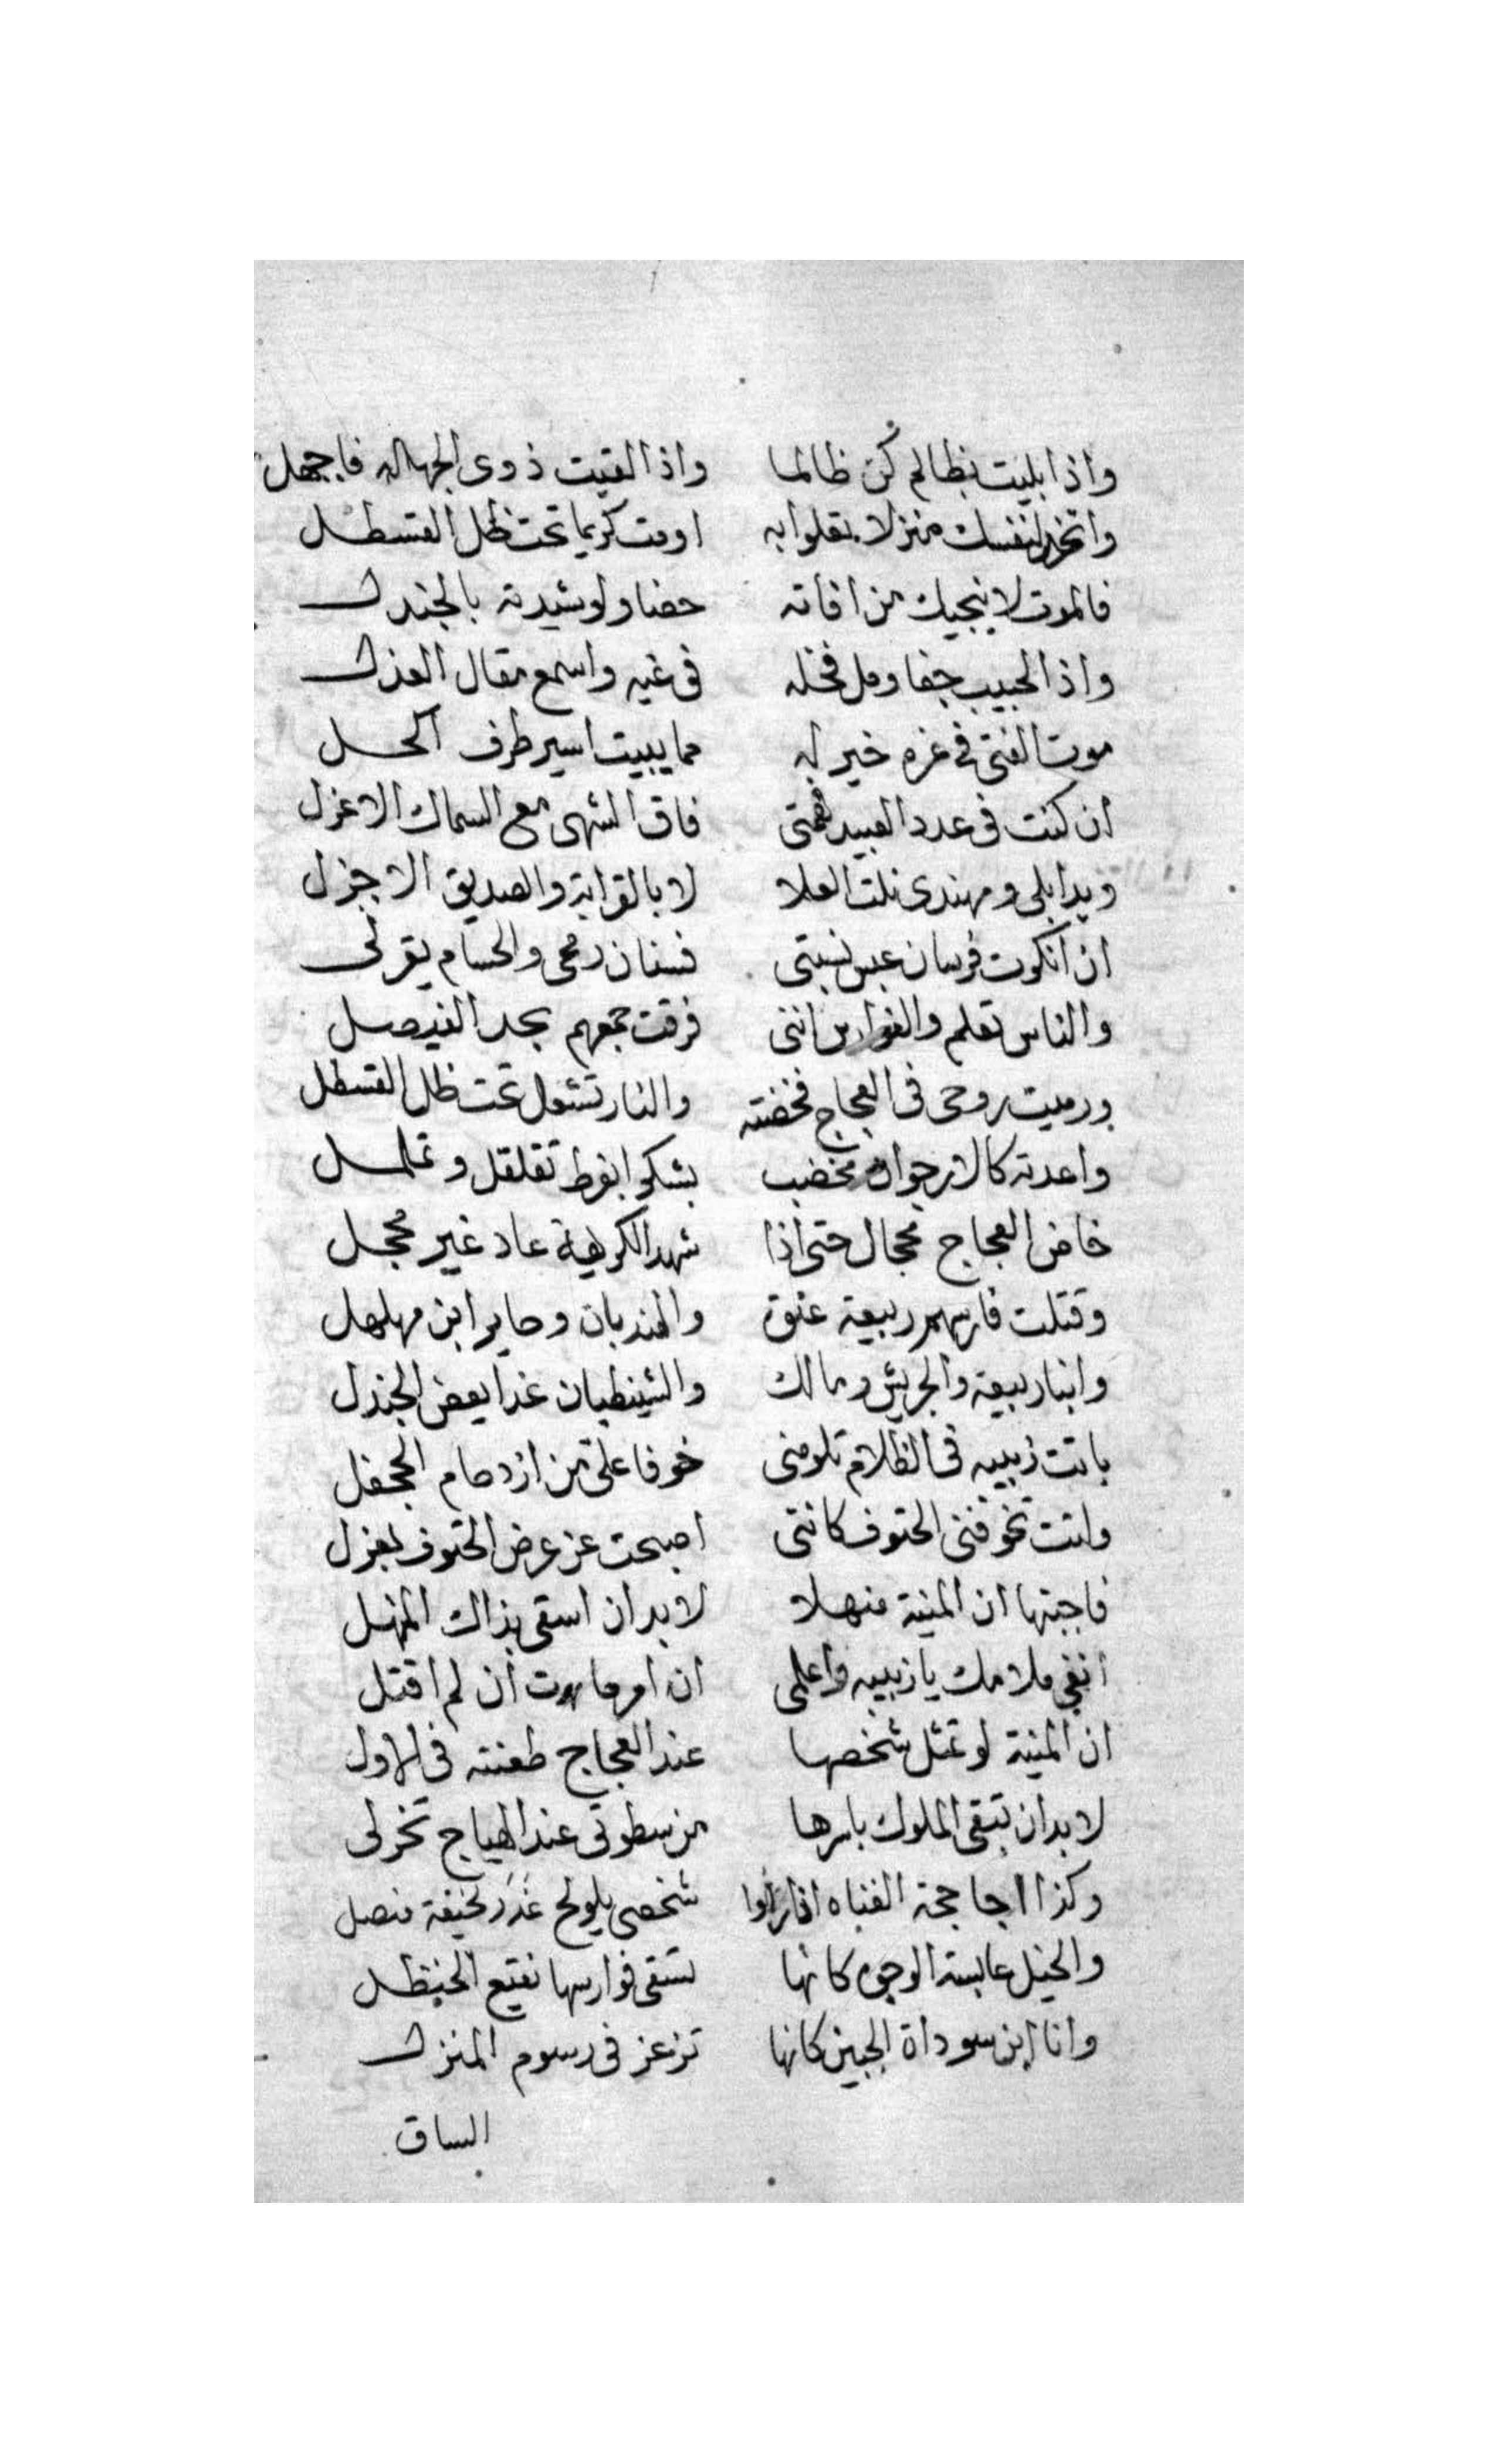 واذا بليت بظالم كن ظالما واذا لقيت ذوى الجهاله فاجهل
واتخذ لنفسك منزلا تعلوا به اومت كريما تحت ظل القسطل
فالموت لا ينجيك من افاته حصنا ولو شيدته بالجندل
واذا الحبيب جفا ومل فخله فى غيه واسمع مقال العذل
موت الفتى فى عزه خير له مما يبيت اسير طرف اكحل
ان كنت فى عدد العبيد فهمتى فاق الشهى مع السماك الاعزل
وبذابلى ومهندى نلت العلا لا بالقرابة والصديق الاجزل
ان انكرت فرسان عبس نسبتى فسنان رمحى والحسام يقر لى
والناس تعلم والفوارس اننى فرقت جمعهم بحد الفيصل
ورميت روحى فى العجاج فخضته والنار تشعل تحت ظل القسطل
واعدته كالارجوان مخضب بشكوا بفرط تقلقل وتململ
خاض العجاج محجال حتى اذا شهد الكريهة عاد غير محجل
وقتلت فارسهم ربيعة عنوة والهندبان وجابر ابن مهلهل
وابنا ربيعة والجريش ومالك والشيظبان غدا بعض الجندل
باتت زبيبه فى الظلام تلومنى خوفا على من ازدحام الجحفل
واتت تخوفنى الحتوف كاننى اصبحت عن عرض الحتوف بمعزل
فاجبتها ان المنية منهلا لا بد ان اسقى بذاك المنهل
انفى ملامك يا زبيبه واعلمى ان امر ما موت ان لم اقتل
ان المنية لو تمثل شخصها عند العجاج طعنته فى الاول
لا بد ان تبقى الملوك باسرها من سطوتى عند الهياج تخر لى
وكذا اجاججة الفناه اذا راوا شخصى يلوح لخيفة منصل
والخيل عابسة الوجوه كانها تسقى فوارسها نقيع الحنظل
وانا ابن سوداة الجبين كانها تزعزع فى رسوم المنزل
الساق